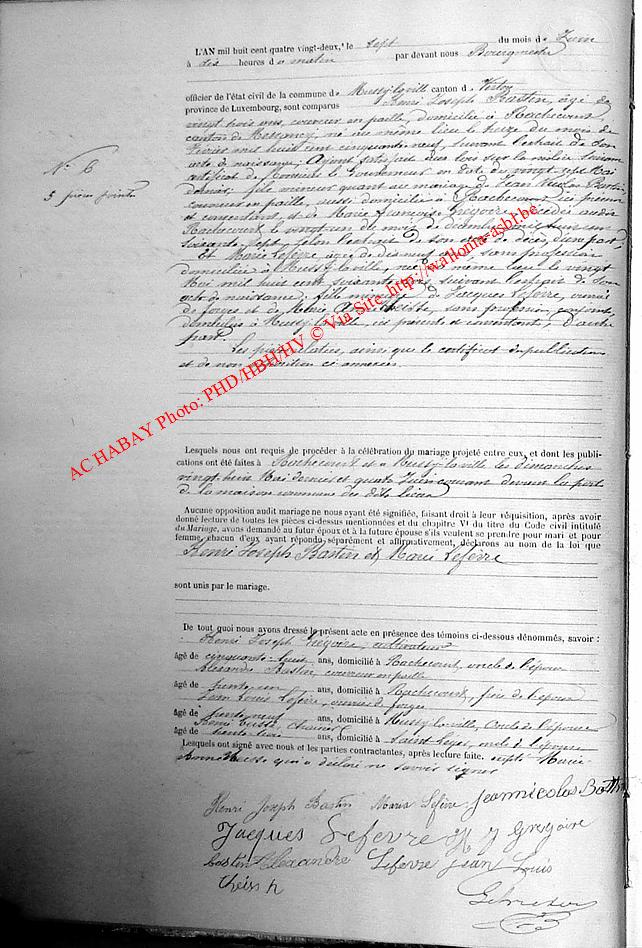 L'AN mil huit cent quatre vingt-deux, le sept du mois de Juin
à dix heures du matin par devant nous Bourgmestre
officier de l'état civil de la commune de Mussy-la-ville canton de Virton
province de Luxembourg, sont comparus Henri Joseph Bastin, âgé de
vingt trois ans, couvreur en paille, domicilié à Rachecourt,
canton de Messancy, né au même lieu le treize du mois de
Février mil huit cent cinquante neuf, suivant l'extrait de son
acte de naissance; Ayant satisfait aux lois sur la milice suivant
certificat de le Gouverneur en date du vingt-sept Mai
dernier; fils mineur quant au mariage de Jean Nicolas Bastin,
couvreur en paille, aussi domicilié à Rachecourt ici présent
et consentant, et de Marie Françoise Grégoire, décédée audit
Rachecourt le vingt-un du mois de décembre mil huit cent
soixante-sept, selon l'extrait de son acte de décès, d'une part,
Et Marie Lefèvre âgée de dix neuf ans, sans profession
domiciliée à Mussy-la-ville, née au même lieu le vingt
Mai mil huit cent soixante trois, suivant l'extrait de son
acte de naissance; fille de Jacques Lefèvre, ouvrier
de forges et de Marie sans profession, conjoints,
domiciliés à Mussy-la-ville, ici présents et consentants, d'autre
part.
Les ainsi que le certificat de publication
et de non opposition ci annexés.
N° 6
5 pièces jointes
AC HABAY Photo: PHD/HBH/HV © Via Site http://wallonia-asbl.be
Lesquels nous ont requis de procéder à la célébration du mariage projeté entre eux, et dont les publi-
cations ont été faites à Rachecourt et à Mussy-la-ville les dimanches
vingt huit Mai dernier et quatre Juin courant devant la porte
de la maison commune des dits lieux
Aucune opposition audit mariage ne nous ayant été signifiée, faisant droit à leur réquisition, après avoir
donné lecture de toutes les pièces ci-dessus mentionnées et du chapitre VI du titre du Code civil intitulé
du Mariage, avons demandé au futur époux et à la future épouse s'ils veulent se prendre pour mari et pour
femme, chacun d'eux ayant répondu séparément et affirmativement, déclarons au nom de la loi que
Henri Joseph Bastin et Marie Lefèvre
sont unis par le mariage.
De tout quoi nous avons dressé le présent acte en présence des témoins ci-dessous dénommés, savoir :
Henri Joseph Grégoire, cultivateur
âgé de cinquante-huit ans, domicilié à Rachecourt, oncle de l'époux
Alexandre Bastin, couvreur en paille
âgé de trente-un ans, domicilié à Rachecourt, frère de l'époux
Jean Louis Lefèvre, ouvrier de forges
âgé de trente neuf ans, domicilié à Mussy-la-ville, oncle de l'épouse
Henri
âgé de trente trois ans, domicilié à Saint Léger, oncle de l'épouse
Lesquels ont signé avec nous et les parties contractantes, après lecture faite. excepté Marie
Anne qui a déclaré ne savoir signer
Henri Joseph Bastin Maria Lefèvre Jean nicolas Bastin
Jacques Lefevre H J Gregoire
Bastin Alexandre Lefevre jean Louis
theis h